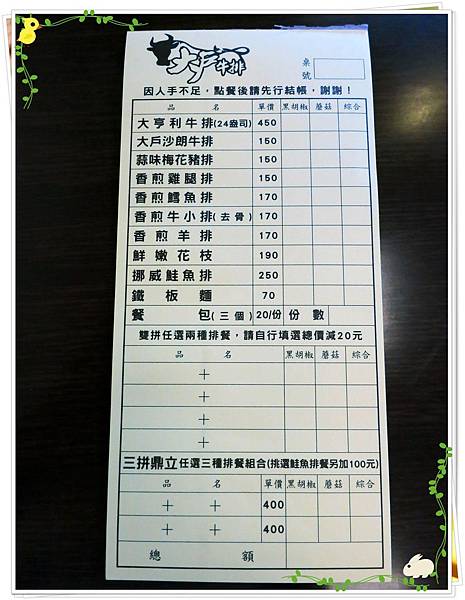 大戶牛排
桌號
因人手不足，點餐後請先行結帳，謝謝！
品名 單價 黑胡椒 蘑菇 綜合
大亨利牛排(24盎司) 450
大戶沙朗牛排 150
蒜味梅花豬排 150
香煎雞腿排 150
香煎鱈魚排 170
香煎牛小排(去骨) 170
香煎羊排 170
鮮嫩花枝 190
挪威鮭魚排 250
鐵板麵 70
餐包(三個) 20/份 份數
雙拼任選兩種排餐，請自行填選總價減20元
品名 黑胡椒 蘑菇 綜合
＋
＋
＋
＋
三拼鼎立任選三種排餐組合(挑選鮭魚排餐另加100元)
品名 單價 黑胡椒 蘑菇 綜合
＋ ＋ 400
＋ ＋ 400
總額